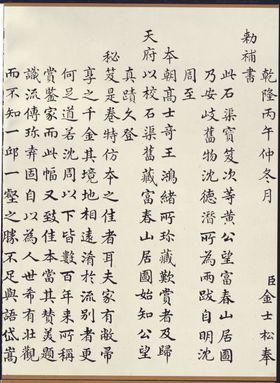 乾隆丙午仲冬月　臣金士松奉
勅補書
此石渠寶笈次等黃公望富春山居圖
乃安岐舊物沈德潛所為兩跋自明沈
周至
本朝高士奇王鴻緒所珍藏歎賞者及歸
天府以校石渠舊藏富春山居圖始知公望
真蹟久登
秘笈是卷特仿本之佳者耳夫家有敝帚
享之千金其境地相遠淆於流別者更
何足道若沈周以下皆數百年來所稱
賞鑒家而此幅又致佳本當其贊美題
識流傳珍弆固自以為人世希有壯觀
而不知一邱一壑之勝不足與語岱嵩